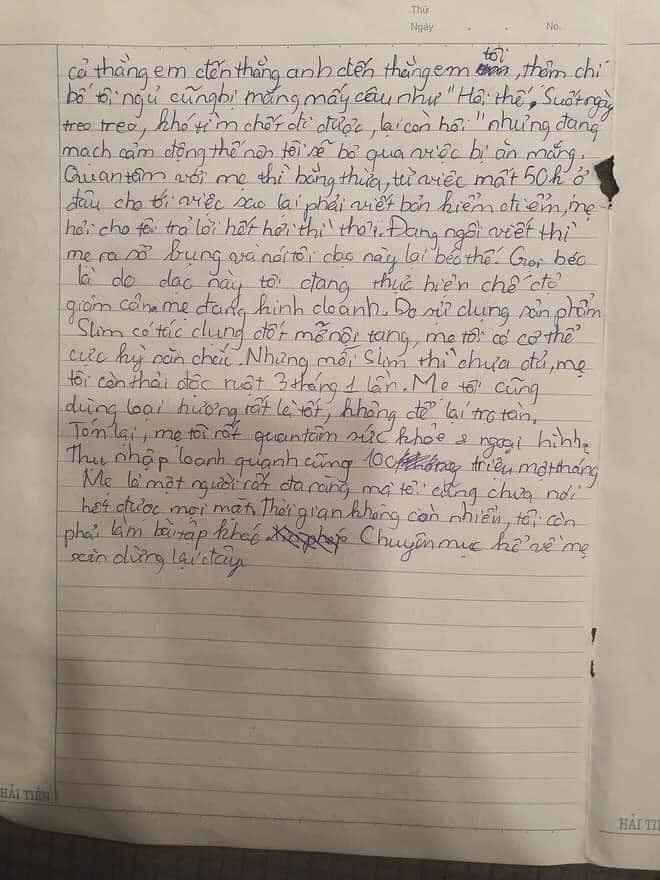 Thứ
Ngày . . No.
cả thằng em đến thằng anh đến thằng em tôi, thậm chí
bố tôi ngủ cũng bị mắng mấy câu như "Hôi thế, Suốt ngày
treo treo, khó tìm chết đi được, lại còn hôi" nhưng đang
mạch cảm động thế nên tôi sẽ bỏ qua việc bị ăn mắng.
Quan tâm với mẹ thì bằng thừa, từ việc mất 50k ở
đâu cho tới việc sao lại phải viết bản kiểm điểm, mẹ
hỏi cho tôi trả lời hết hơi thì thôi. Đang ngồi viết thì
mẹ ra sờ bụng và nói tôi dạo này lại béo thế. Gọi béo
là do dạo này tôi đang thực hiện chế độ
giảm cân mẹ đang kinh doanh. Do sử dụng sản phẩm
Slim có tác dụng đốt mỡ nội tạng, mẹ tôi có cơ thể
cực kỳ săn chắc. Nhưng mỗi Slim thì chưa đủ, mẹ
tôi còn thải độc ruột 3 tháng 1 lần. Mẹ tôi cũng
dùng loại hương rất là tốt, không để lại tro tàn.
Tóm lại, mẹ tôi rất quan tâm sức khỏe & ngoại hình.
Thu nhập loanh quanh cũng 100 triệu một tháng
Mẹ là một người rất đa năng mà tôi cũng chưa nói
hết được mọi mặt. Thời gian không còn nhiều, tôi còn
phải làm bài tập khác. Chuyên mục kể về mẹ
xin dừng lại đây
HẢI TIẾN
HẢI TIẾ